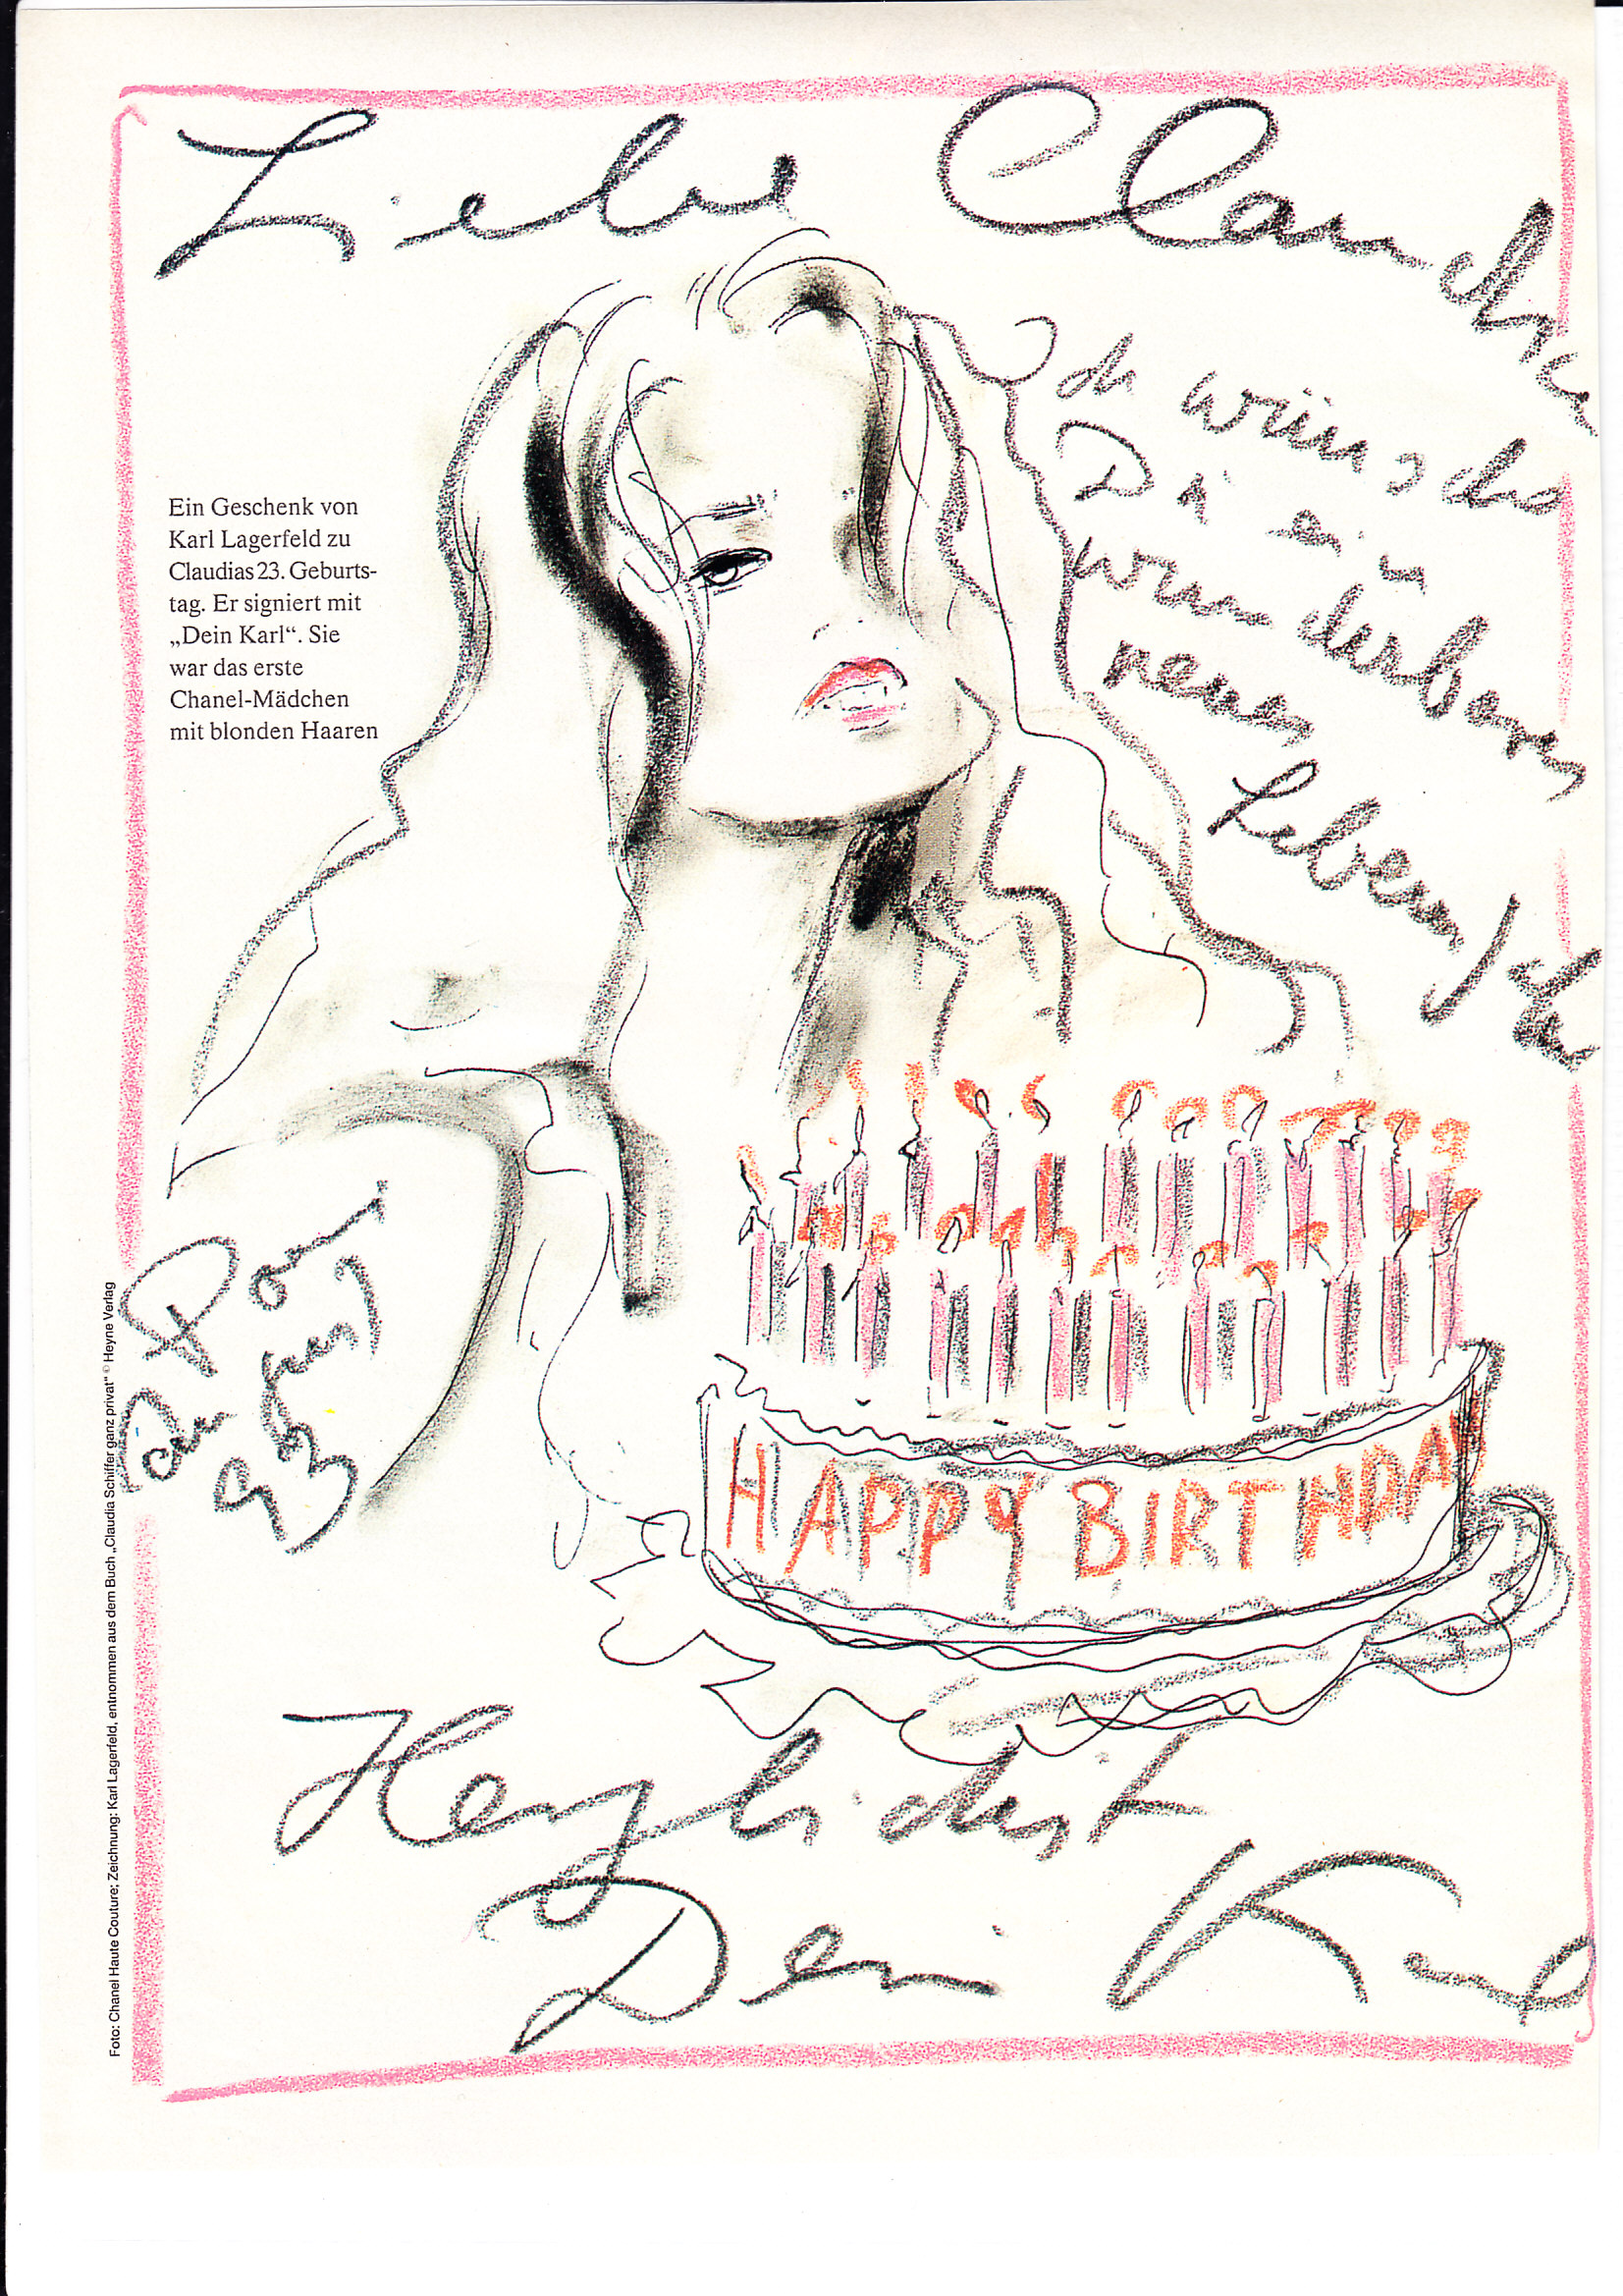 Liebe Claudia
Ich wünsche
Dir ein
wunderbares
neues
Lebensjahr
Ein Geschenk von
Karl Lagerfeld zu
Claudias 23. Geburts-
tag. Er signiert mit
„Dein Karl“. Sie
war das erste
Chanel-Mädchen
mit blonden Haaren
Paris
August
93
HAPPY BIRTHDAY
Herzlichst
Dein Karl
Foto: Chanel Haute Couture; Zeichnung: Karl Lagerfeld, entnommen aus dem Buch „Claudia Schiffer ganz privat“ © Heyne Verlag